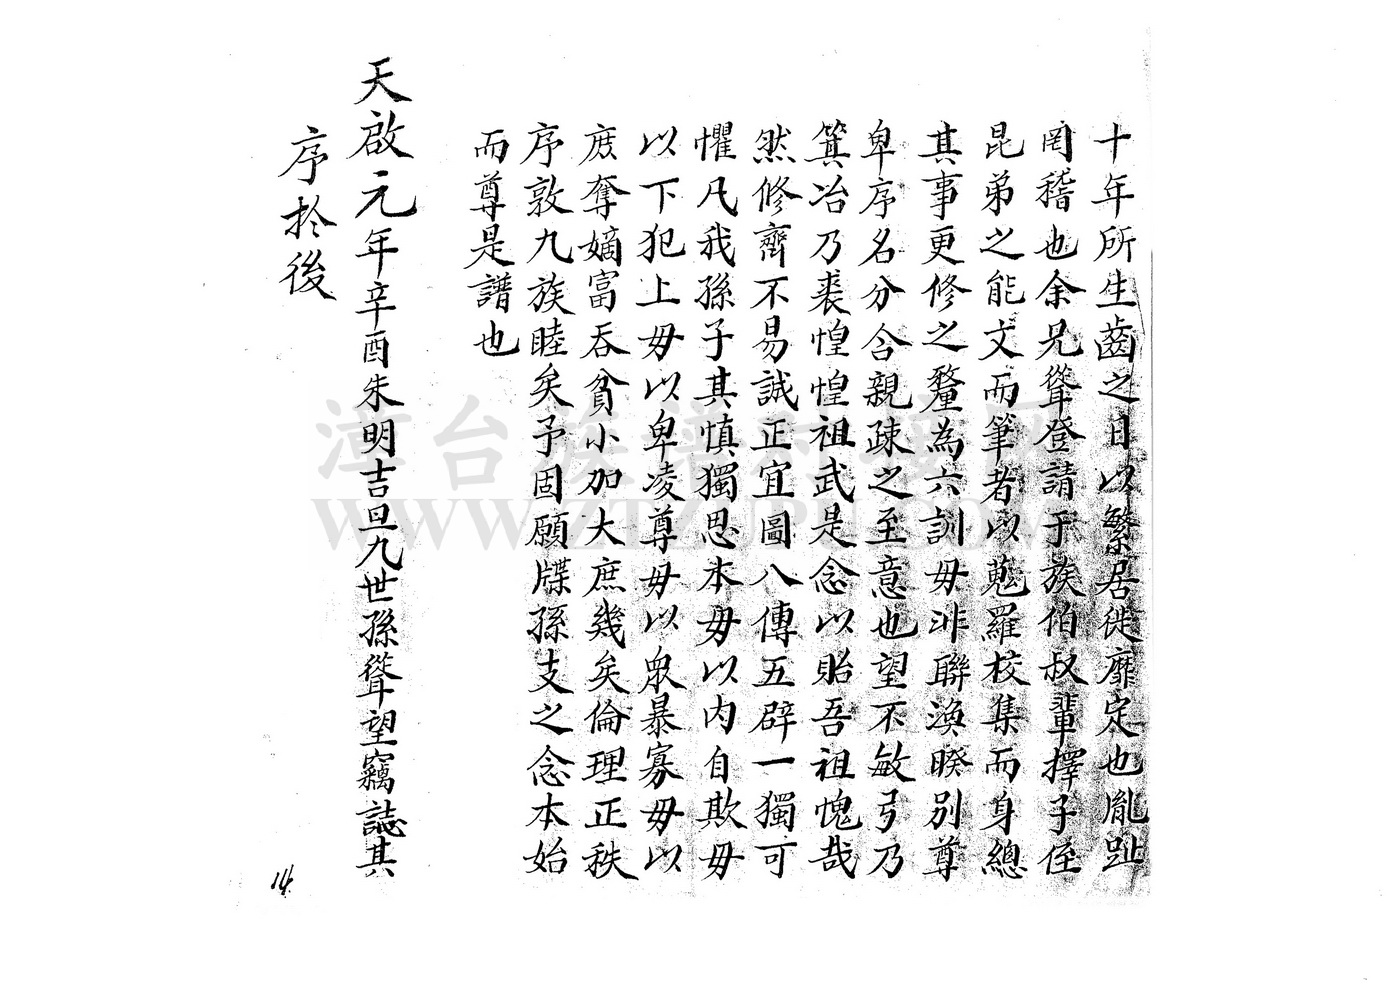 十年所生齒之日以繁居徙靡定也胤趾
罔稽也余兄聳登請于族伯叔輩擇子侄
昆弟之能文而筆者以蒐羅校集而身總
其事更修之釐為六訓毋非聯渙暌別尊
卑序名分合親疎之至意也望不敏弓乃
箕冶乃裘惶惶祖武是念以貽吾祖愧哉
然修齊不易誠正宜圖八傳五辟一獨可
懼凡我孫子其慎獨思本毋以內自欺毋
以下犯上毋以卑凌尊毋以眾暴寡毋以
庶奪嫡富吞貧小加大庶幾矣倫理正秩
序敦九族睦矣予固願牒孫支之念本始
而尊是譜也
天啟元年辛酉朱明吉旦九世孫聳望竊誌其
序於後
14
漳台族谱对接网
WWW.ZTZUPU.COM